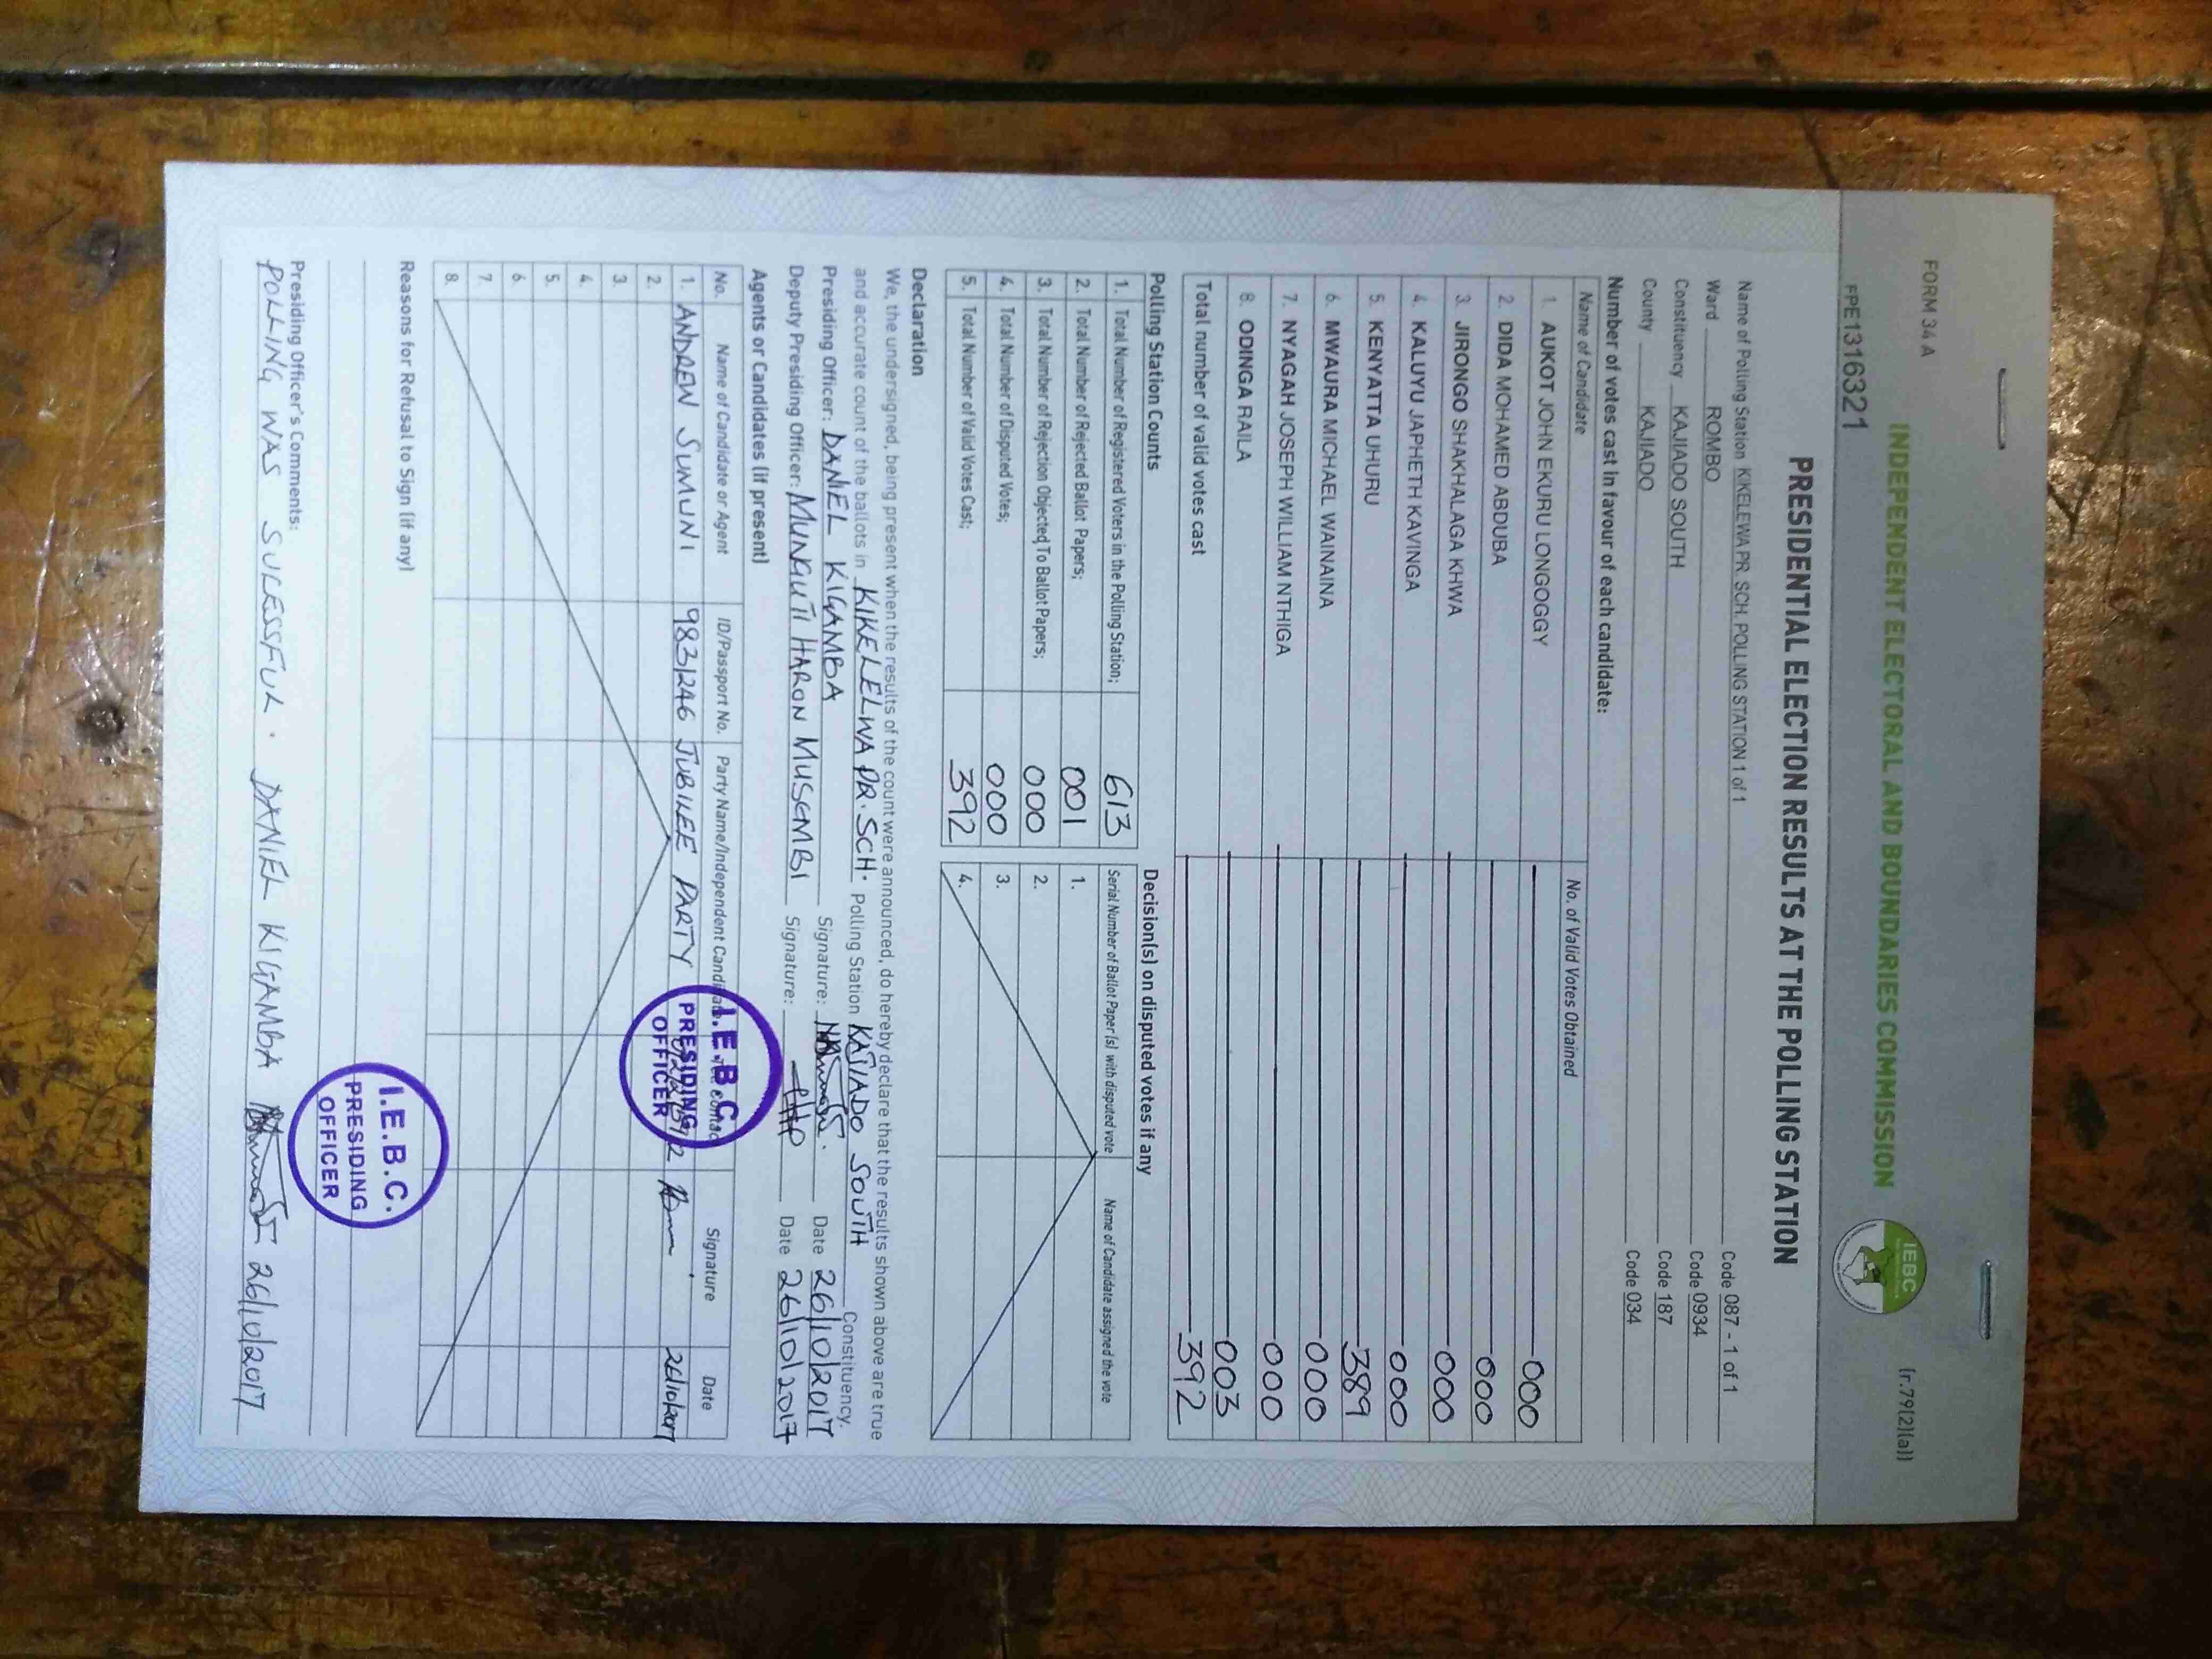 FORM 34 A
(r.79(2)(a))
INDEPENDENT ELECTORAL AND BOUNDARIES COMMISSION
IEBC
FPE1316321
PRESIDENTIAL ELECTION RESULTS AT THE POLLING STATION
Name of Polling Station KIKELEWA PR. SCH. POLLING STATION 1 of 1 Code 087 - 1 of 1
Ward ROMBO Code 0934
Constituency KAJIADO SOUTH Code 187
County KAJIADO Code 034
Number of votes cast in favour of each candidate:
Name of Candidate No. of Valid Votes Obtained
1. AUKOT JOHN EKURU LONGOGGY 000
2. DIDA MOHAMED ABDUBA 000
3. JIRONGO SHAKHALAGA KHWA 000
4. KALUYU JAPHETH KAVINGA 000
5. KENYATTA UHURU 389
6. MWAURA MICHAEL WAINAINA 000
7. NYAGAH JOSEPH WILLIAM NTHIGA 000
8. ODINGA RAILA 003
Total number of valid votes cast 392
Polling Station Counts
1. Total Number of Registered Voters in the Polling Station; 613
2. Total Number of Rejected Ballot Papers; 001
3. Total Number of Rejection Objected To Ballot Papers; 000
4. Total Number of Disputed Votes; 000
5. Total Number of Valid Votes Cast; 392
Decision(s) on disputed votes if any
Serial Number of Ballot Paper (s) with disputed vote Name of Candidate assigned the vote
1.
2.
3.
4.
Declaration
We, the undersigned, being present when the results of the count were announced, do hereby declare that the results shown above are true
and accurate count of the ballots in KIKELELWA PR. SCH. Polling Station KAJIADO SOUTH Constituency.
Presiding Officer: DANIEL KIGAMBA Signature: Date 26/10/2017
Deputy Presiding Officer: MUNGUTI HARON MUSEMBI Signature: Date 26/10/2017
Agents or Candidates (if present)
No. Name of Candidate or Agent ID/Passport No. Party Name/Independent Candidate Signature Date
1. ANDREW SUMUNI 9831246 JUBILEE PARTY 26/10/2017
2.
3.
4.
5.
6.
7.
8.
I.E.B.C.
PRESIDING
OFFICER
Reasons for Refusal to Sign (if any)
I.E.B.C.
PRESIDING
OFFICER
Presiding Officer's Comments:
POLLING WAS SUCESSFUL. DANIEL KIGAMBA 26/10/2017